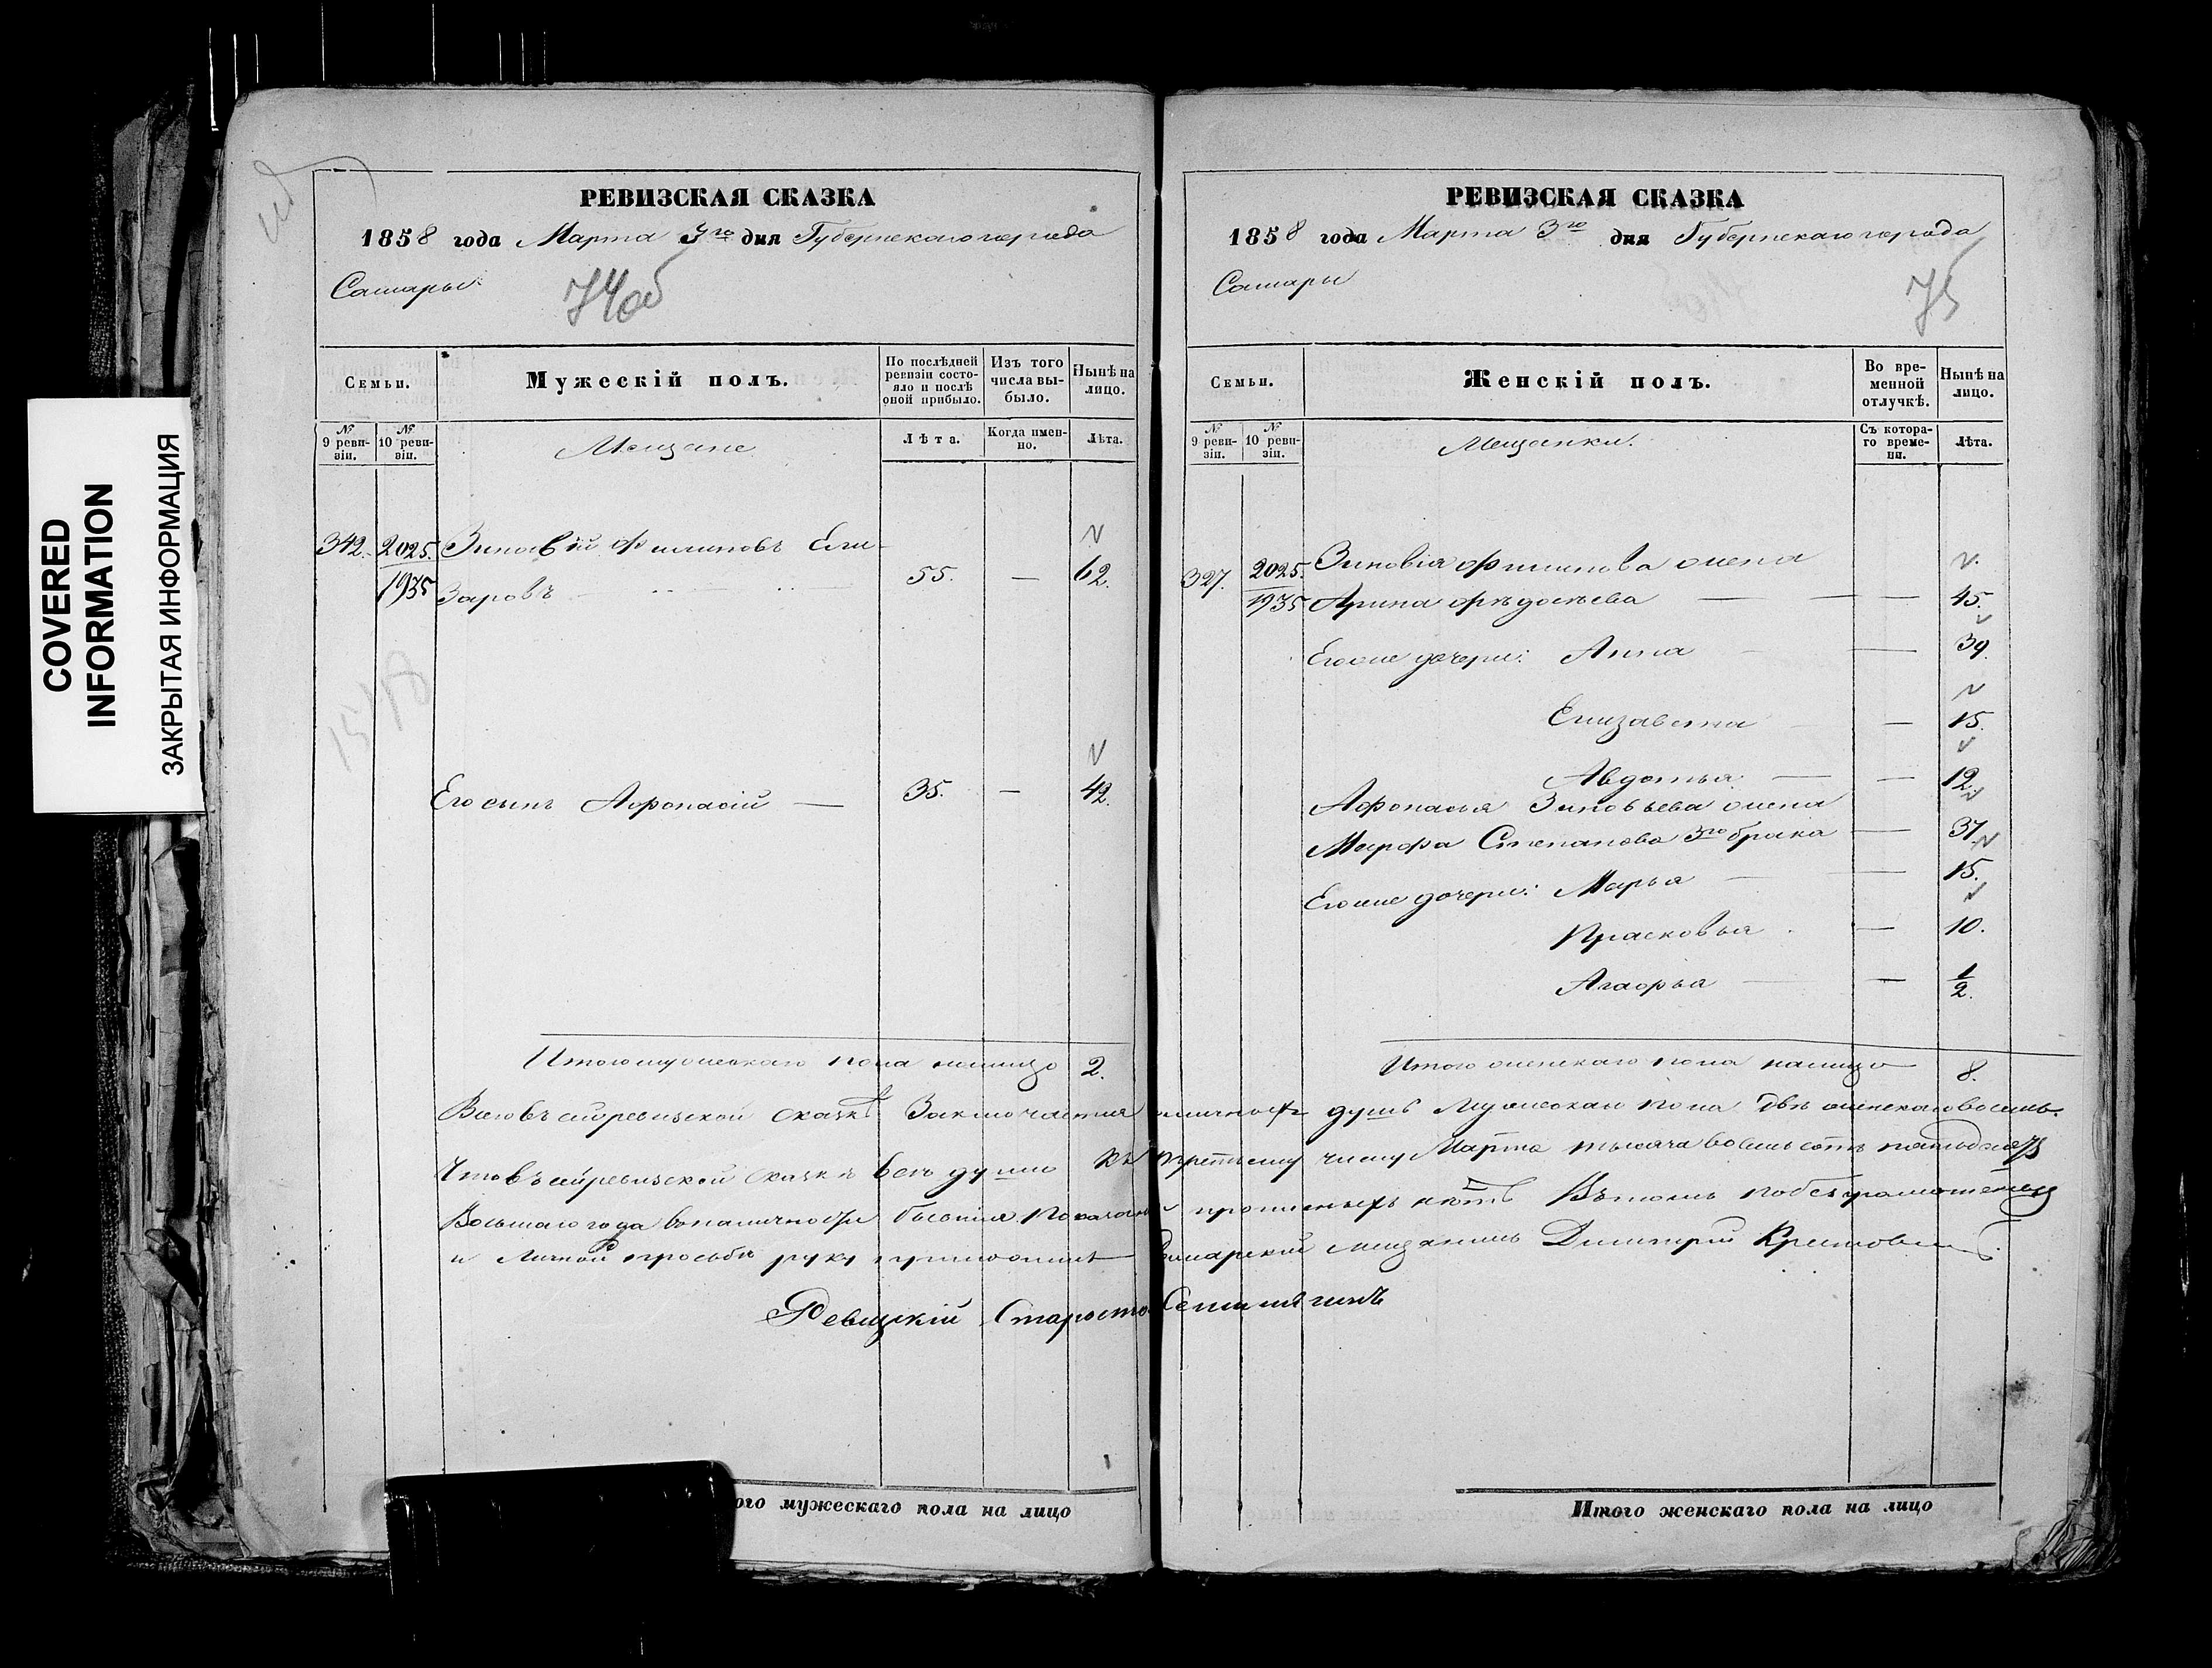 COVERED
INFORMATION
ЗАКРЫТАЯ ИНФОРМАЦИЯ
РЕВИЗСКАЯ СКАЗКА
1858 года Марта 3го дня Губернскаго города
Самары
74об
Семьи.
Мужескій полъ.
По послѣдней ревизіи состояло и послѣ оной прибыло.
Изъ того числа выбыло.
Нынѣ на лицо.
№ 9 ревизіи.
№ 10 ревизіи.
Мещане
Лѣта.
Когда именно.
Лѣта.
342. 2025. Зиновій Филиповъ Ели-
1935 заровъ 55. — 62.
Его сынъ Афонасій — 35. — 42.
Итого мужескаго пола налицо 2.
РЕВИЗСКАЯ СКАЗКА
1858 года Марта 3го дня Губернскаго города
Самары
75
Семьи.
Женскій полъ.
Во временной отлучкѣ.
Нынѣ на лицо.
№ 9 ревизіи.
№ 10 ревизіи.
Мещанки.
Съ котораго времени.
Лѣта.
327. 2025. Зиновія Филипова жена
1935 Арина Фѣдосѣева — — 45.
Егоже дочери: Анна — 39.
Елизавета — 15.
Авдотья — — 12.
Афонасья Зиновьева жена
Марфа Степанова 3го брака — 37.
Егоже дочери: Марья — 15.
Прасковья — 10.
Агафья — — 1/2.
Итого женскаго пола налицо 8.
Всего въ сей ревизской сказкѣ Заключается личности душъ Мужескаго пола двѣ женскаго восемь.
Что въ сей ревизской сказкѣ всѣ души къ третьему числу Марта тысяча восемьсотъ пятьдесятъ
Восьмаго года въ наличности бывшія Показаны и прописныхъ нѣтъ Въ томъ
и Личной просьбѣ руку приложилъ Самарский мещанинъ Димитрий
Ревизскій Староста
ого мужескаго пола на лицо
Итого женскаго пола на лицо